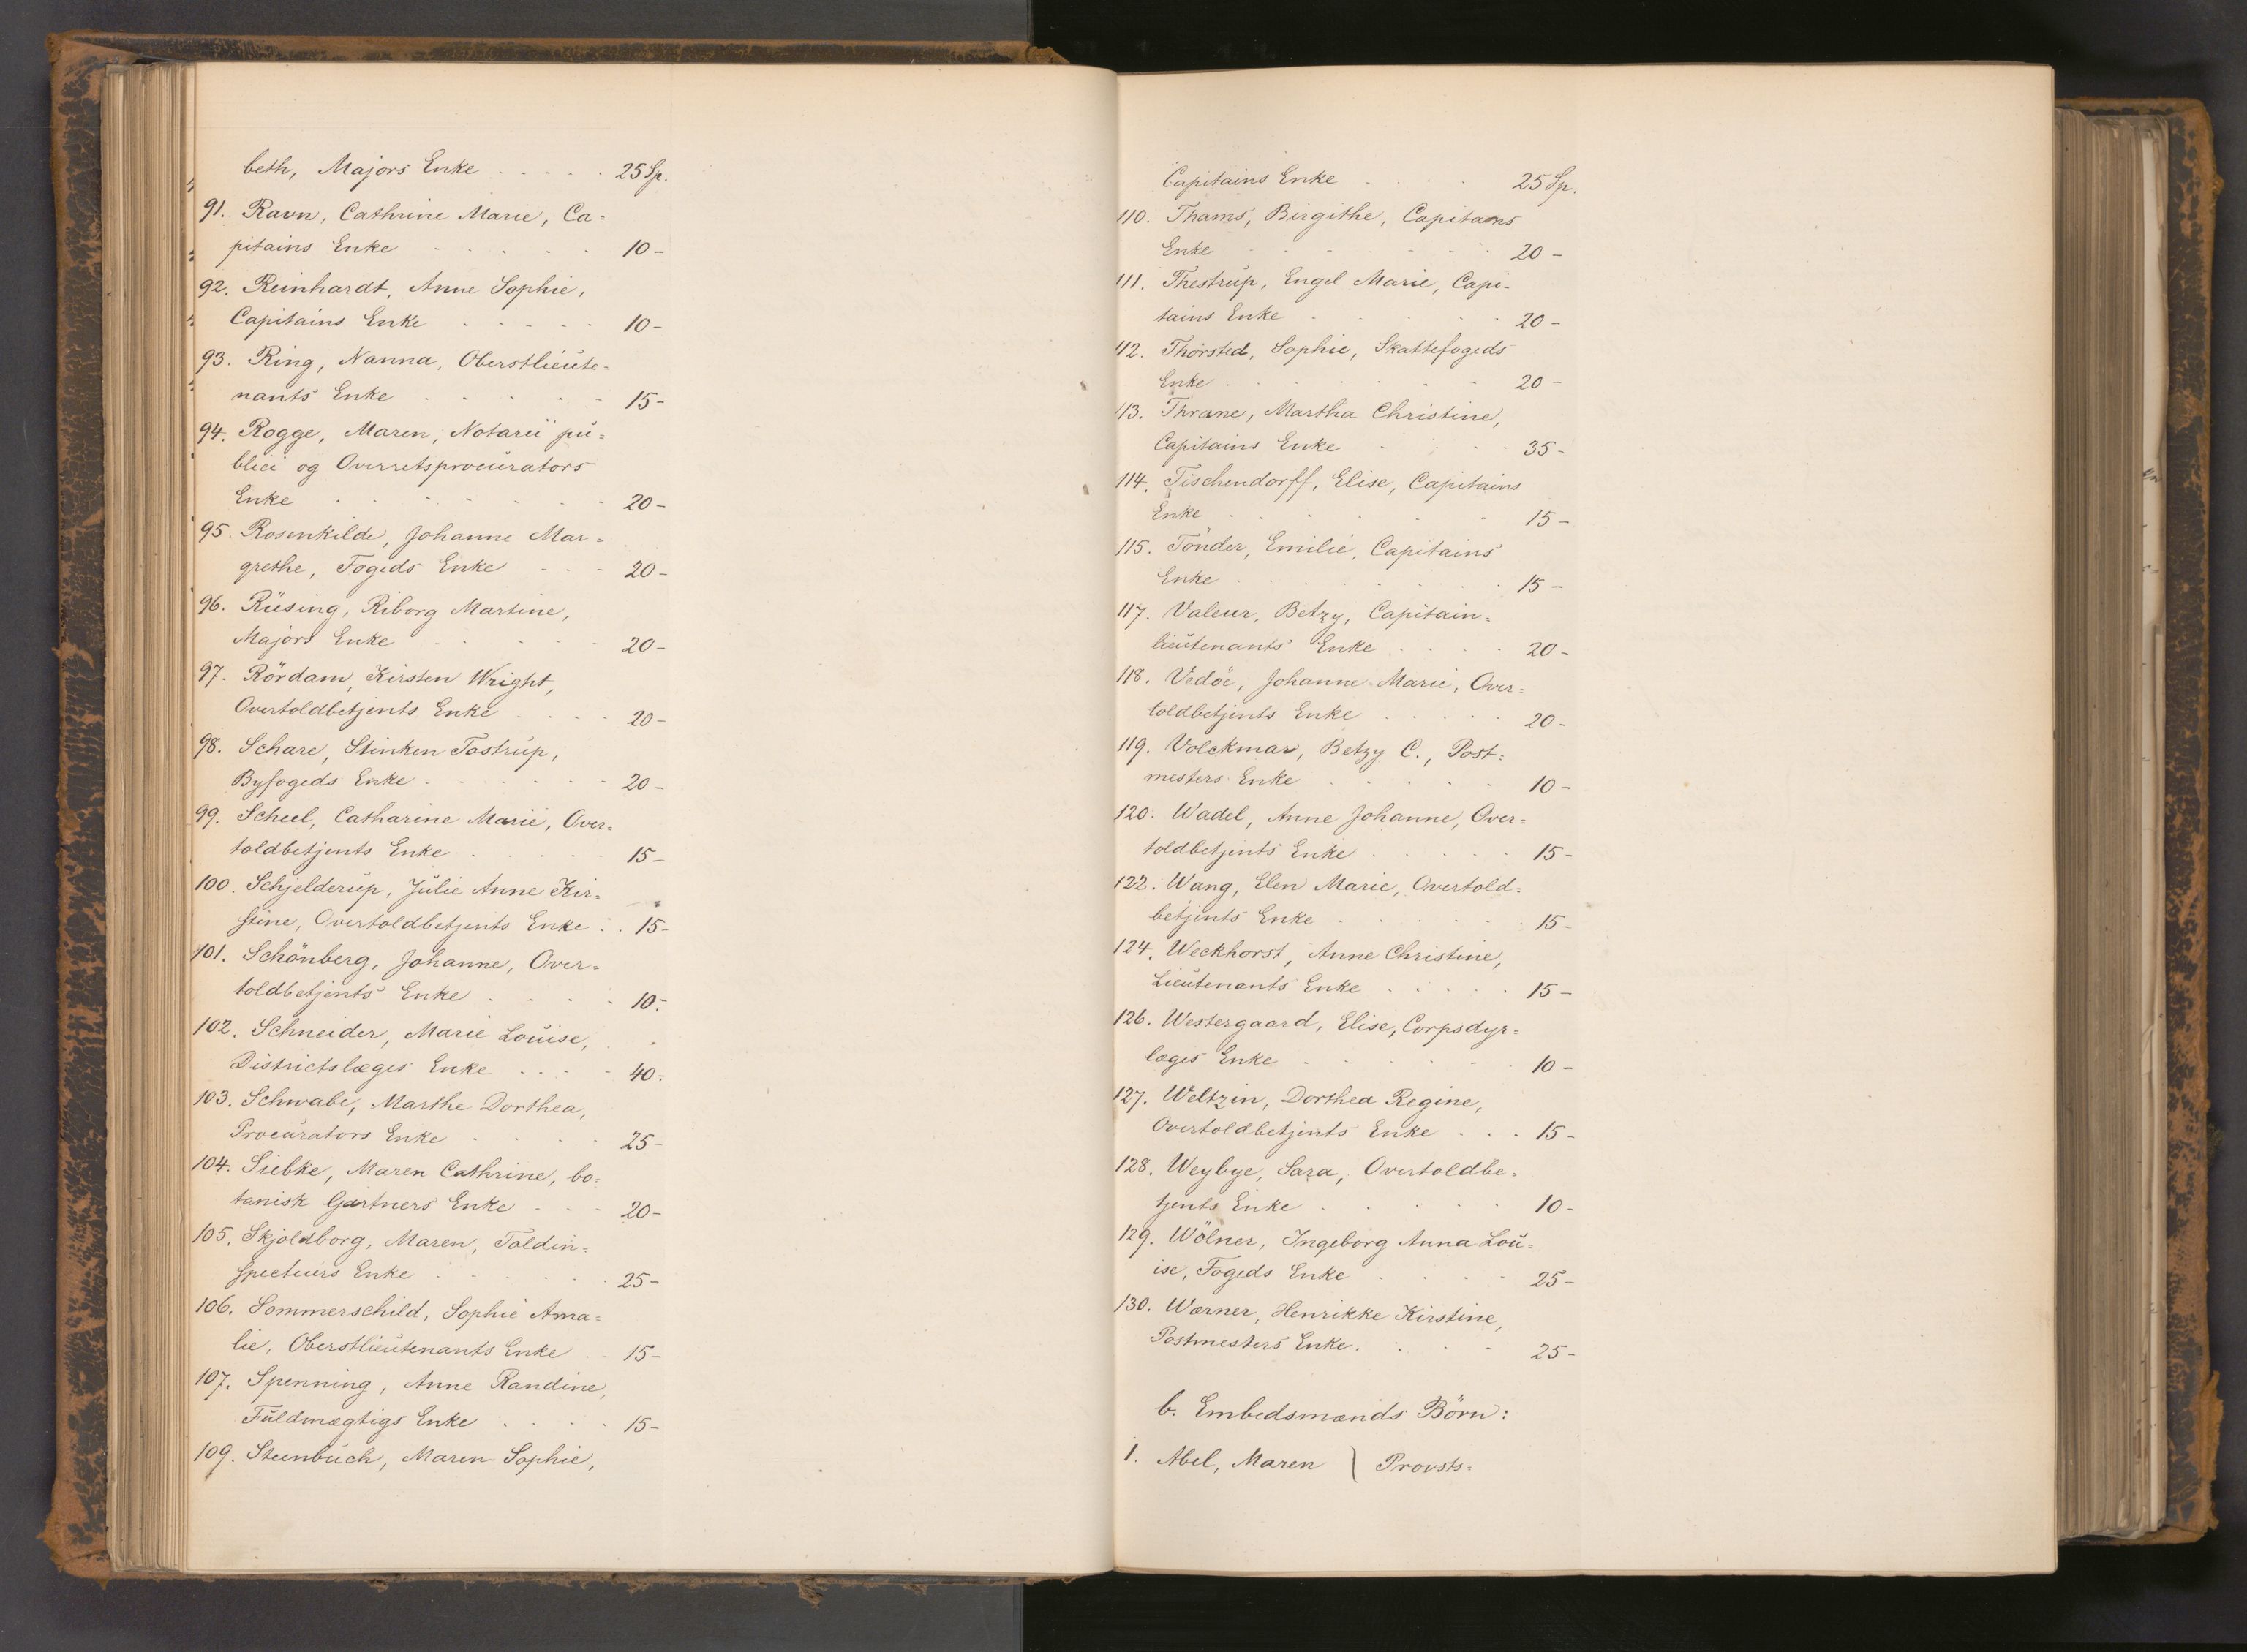 beth, Majors Enke . . . . . 25 Sp.
91. Ravn, Cathrine Marie, Ca=
pitains Enke . . . . . 10 -
92. Reinhardt, Anne Sophie,
Capitains Enke . . . . . 10 -
93. Ring, Nanna, Oberstlieute=
nants Enke . . . . . 15 -
94. Rogge, Maren, Notarii pu=
blici og Overretsprocurators
Enke . . . . . . . 20 -
95. Rosenkilde, Johanne Mar=
grethe, Fogeds Enke . . . 20 -
96. Rüsing, Riborg Martine,
Majors Enke . . . . . 20 -
97. Rördam, Kirsten Wright,
Overtoldbetjents Enke . . . . 20 -
98. Schare, Stinken Tostrup,
Byfogeds Enke . . . . . . 20 -
99. Scheel, Catharine Marie, Over=
toldbetjents Enke . . . . . 15 -
100. Schjelderup, Julie Anne Kir=
stine, Overtoldbetjents Enke . . 15 -
101. Schönberg, Johanne, Over=
toldbetjents Enke . . . . 10 -
102. Schneider, Marie Louise,
Districtslæges Enke . . . . 40 -
103. Schwabe, Marthe Dorthea,
Procurators Enke . . . . 25 -
104. Siebke, Maren Cathrine, bo=
tanisk Gartners Enke . . . 20 -
105. Skjoldborg, Maren, Toldin=
specteurs Enke . . . . . . 25 -
106. Sommerschild, Sophie Ama=
lie, Oberstlieutenants Enke . . 15 -
107. Spenning, Anne Randine,
Fuldmægtigs Enke . . . . 15 -
109. Steenbuch, Maren Sophie,
Capitains Enke . . . . 25 Sp.
110. Thams, Birgithe, Capitains
Enke . . . . . . . 20 -
111. Thestrup, Engel Marie, Capi-
tains Enke . . . . . 20 -
112. Thorsted, Sophie, Skattefogeds
Enke . . . . . . . 20 -
113. Thrane, Martha Christine,
Capitains Enke . . . . 35 -
114. Tischendorff, Elise, Capitains
Enke . . . . . . . 15 -
115. Tönder, Emilie, Capitains
Enke . . . . . . . 15 -
117. Valeur, Betzy, Capitain=
lieutenants Enke . . . . 20 -
118. Vedöe, Johanne Marie, Over=
toldbetjents Enke . . . . . 20 -
119. Volckmar, Betzy C., Post=
mesters Enke . . . . . 10 -
120. Wadel, Anne Johanne, Over=
toldbetjents Enke . . . . . 15 -
122. Wang, Elen Marie, Overtold=
betjents Enke . . . . . . 15 -
124. Weckhorst, Anne Christine,
Lieutenants Enke . . . . . 15 -
126. Westergaard, Elise, Corpsdyr=
læges Enke . . . . . . 10 -
127. Weltzin, Dorthea Regine,
Overtoldbetjents Enke . . . 15 -
128. Weybye, Sara, Overtoldbe=
tjents Enke . . . . . 10 -
129. Wölner, Ingeborg Anna Lou=
ise, Fogeds Enke . . . . 25 -
130. Wærner, Henrikke Kirstine,
Postmesters Enke . . . . 25 -
b. Embedsmænds Börn:
1. Abel, Maren } Provsts=